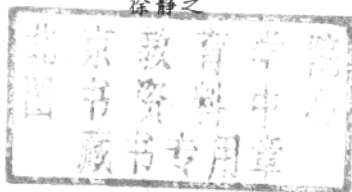 徐静之
北京教育学院
图书资料中心
藏书专用章